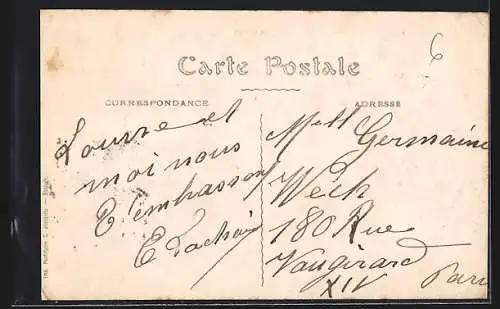 6
Carte Postale
CORRESPONDANCE
ADRESSE
et
moi nous
t'embrassons
E
Mell Germaine
180 Rue
Vaugirard
XIV Paris